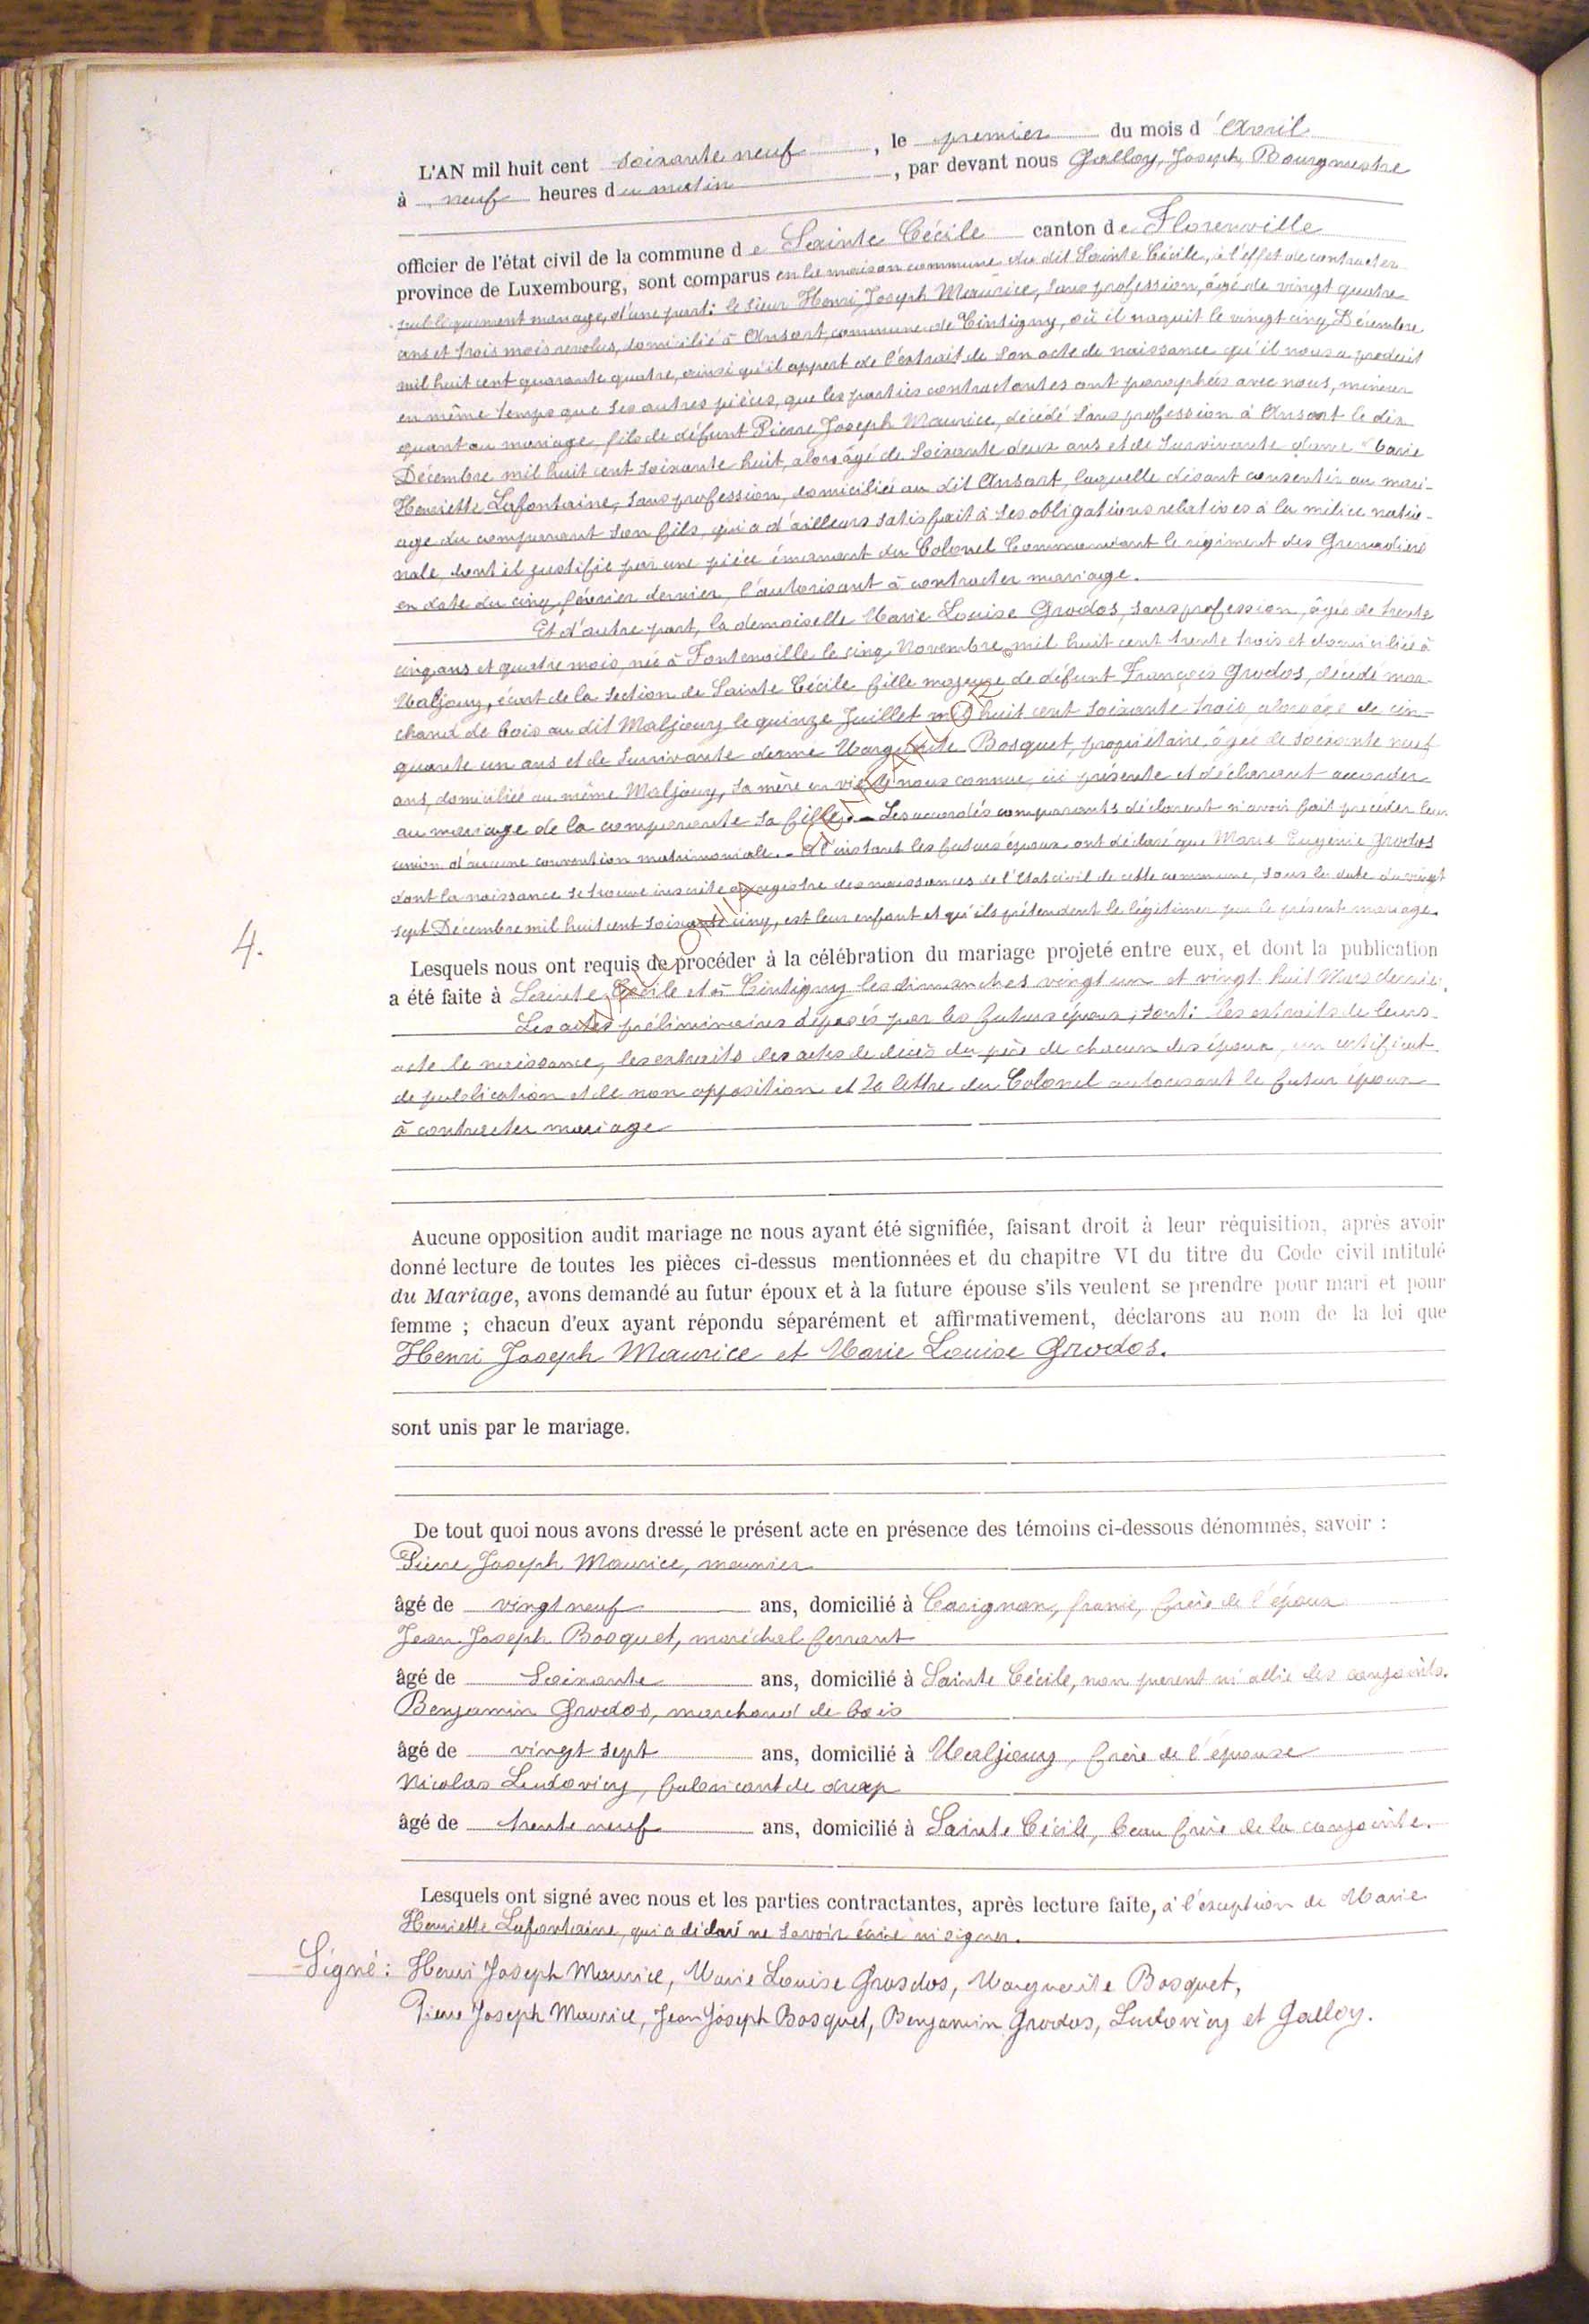 L'AN mil huit cent soixante neuf, le premier du mois d'Avril
à neuf heures du matin, par devant nous Galloy, Joseph, Bourgmestre
officier de l'état civil de la commune de Sainte Cécile canton de Florenville
province de Luxembourg, sont comparus en la maison commune du dit Sainte Cécile, à l'effet de contracter
publiquement mariage, d'une part: le sieur Henri Joseph Maurice, sans profession, âgé de vingt quatre
ans et trois mois revolus, domicilié à Ansart, commune de Tintigny, où il naquit le vingt cinq Décembre
mil huit cent quarante quatre, ainsi qu'il appert de l'extrait de son acte de naissance qu'il nous a produit
en même temps que ses autres pièces, que les parties contractantes ont paraphées avec nous, mineur
quant au mariage, fils de défunt Pierre Joseph Maurice, décédé sans profession à Ansart le dix
Décembre mil huit cent soixante huit, alors âgé de soixante deux ans et de survivante dame Marie
Henriette Lafontaine, sans profession, domiciliée au dit Ansart, laquelle disant consentir au mari-
age du comparant son fils, qui a d'ailleurs satisfait à ses obligations relatives à la milice natio-
nale, dont il justifie par une pièce émanant du Colonel Commandant le régiment des Grenadiers
en date du cinq février dernier, l'autorisant à contracter mariage.
Et d'autre part, la demoiselle Marie Louise Grodos, sans profession, âgée de trente
cinq ans et quatre mois, née à Fontenoille le cinq Novembre mil huit cent trente trois et domiciliée à
Maljouy, écart de la section de Sainte Cécile fille majeure de défunt François Grodos, décédé mar-
chand de bois au dit Maljouy le quinze Juillet mil huit cent soixante trois, alors âgé de cin-
quante un ans et de survivante dame Marguerite Bosquet, propriétaire, âgée de soixante neuf
ans, domiciliée au même Maljouy, sa mère en vie à nous connue, ici présente et déclarant accorder
au mariage de la comparante sa fille. - Les accordés comparants déclarent n'avoir fait précéder leur
union d'aucune convention matrimoniale. - A l'instant les futurs époux ont déclaré que Marie Eugénie Grodos
dont la naissance se trouve inscrite au registre des naissances de l'Etat civil de cette commune, sous la date du vingt
sept Décembre mil huit cent soixante cinq, est leur enfant et qu'ils prétendent le légitimer par le présent mariage.
4.
Lesquels nous ont requis de procéder à la célébration du mariage projeté entre eux, et dont la publication
a été faite à Sainte Cécile et à Tintigny les dimanches vingt un et vingt huit Mars dernier.
Les actes préliminaires déposés par les futurs époux, sont: les extraits de leurs
acte de naissance, les extraits des actes de décès du père de chacun des époux, un certificat
de publication et de non opposition et la lettre du Colonel autorisant le futur époux
à contracter mariage
Aucune opposition audit mariage ne nous ayant été signifiée, faisant droit à leur réquisition, après avoir
donné lecture de toutes les pièces ci-dessus mentionnées et du chapitre VI du titre du Code civil intitulé
du Mariage, avons demandé au futur époux et à la future épouse s'ils veulent se prendre pour mari et pour
femme ; chacun d'eux ayant répondu séparément et affirmativement, déclarons au nom de la loi que
Henri Joseph Maurice et Marie Louise Grodos.
sont unis par le mariage.
De tout quoi nous avons dressé le présent acte en présence des témoins ci-dessous dénommés, savoir :
Pierre Joseph Maurice, meunier
âgé de vingt neuf ans, domicilié à Carignan, france, frère de l'époux
Jean Joseph Bosquet, maréchal ferrant
âgé de Soixante ans, domicilié à Sainte Cécile, non parent ni allié des conjoints.
Benjamin Grodos, marchand de bois
âgé de vingt sept ans, domicilié à Maljouy, frère de l'épouse
Nicolas Ludovicy, fabricant de drap
âgé de trente neuf ans, domicilié à Sainte Cécile, beau frère de la conjointe.
Lesquels ont signé avec nous et les parties contractantes, après lecture faite, à l'exception de Marie
Henriette Lafontaine, qui a déclaré ne savoir écrire ni signer.
Signé: Henri Joseph Maurice, Marie Louise Grosdos, Marguerite Bosquet,
Pierre Joseph Maurice, Jean Joseph Bosquet, Benjamin Grodos, Ludovicy et Galloy.